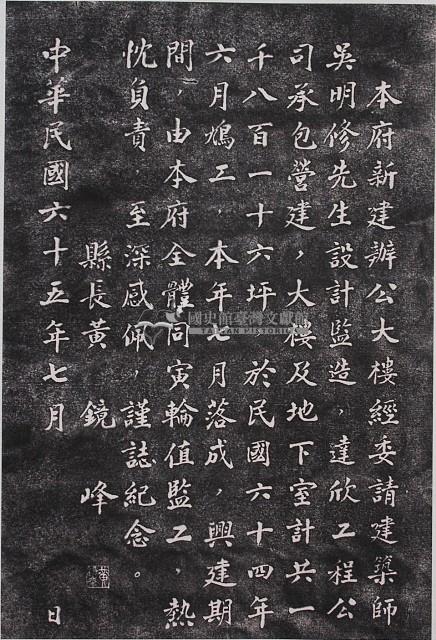 本府新建辦公大樓經委請建築師
吳明修先生設計監造，達欣工程公
司承包營建，大樓及地下室計共一
千八百一十六坪　於民國六十四年
六月鳩工，本年七月落成，興建期
間，由本府全體同寅輪值監工，熱
忱負責，至深感佩，謹誌紀念。
縣長黃　鏡　峰
中華民國六十五年七月　　日
國史館臺灣文獻館
TAIWAN HISTORICA